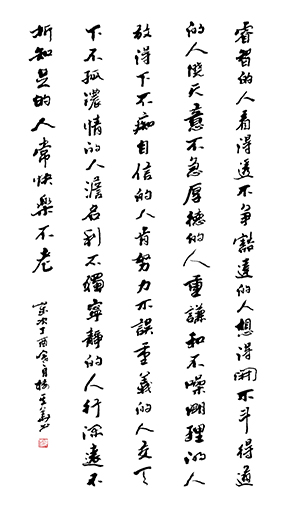 睿智的人看得透不争豁達的人想得開不斗得道
的人曉天意不急厚德的人重謙和不噪明理的人
放得下不痴自信的人肯努力不誤重義的人交天
下不孤濃情的人澹名利不獨寧靜的人行深遠不
折知足的人常快樂不老
歲次丁酉